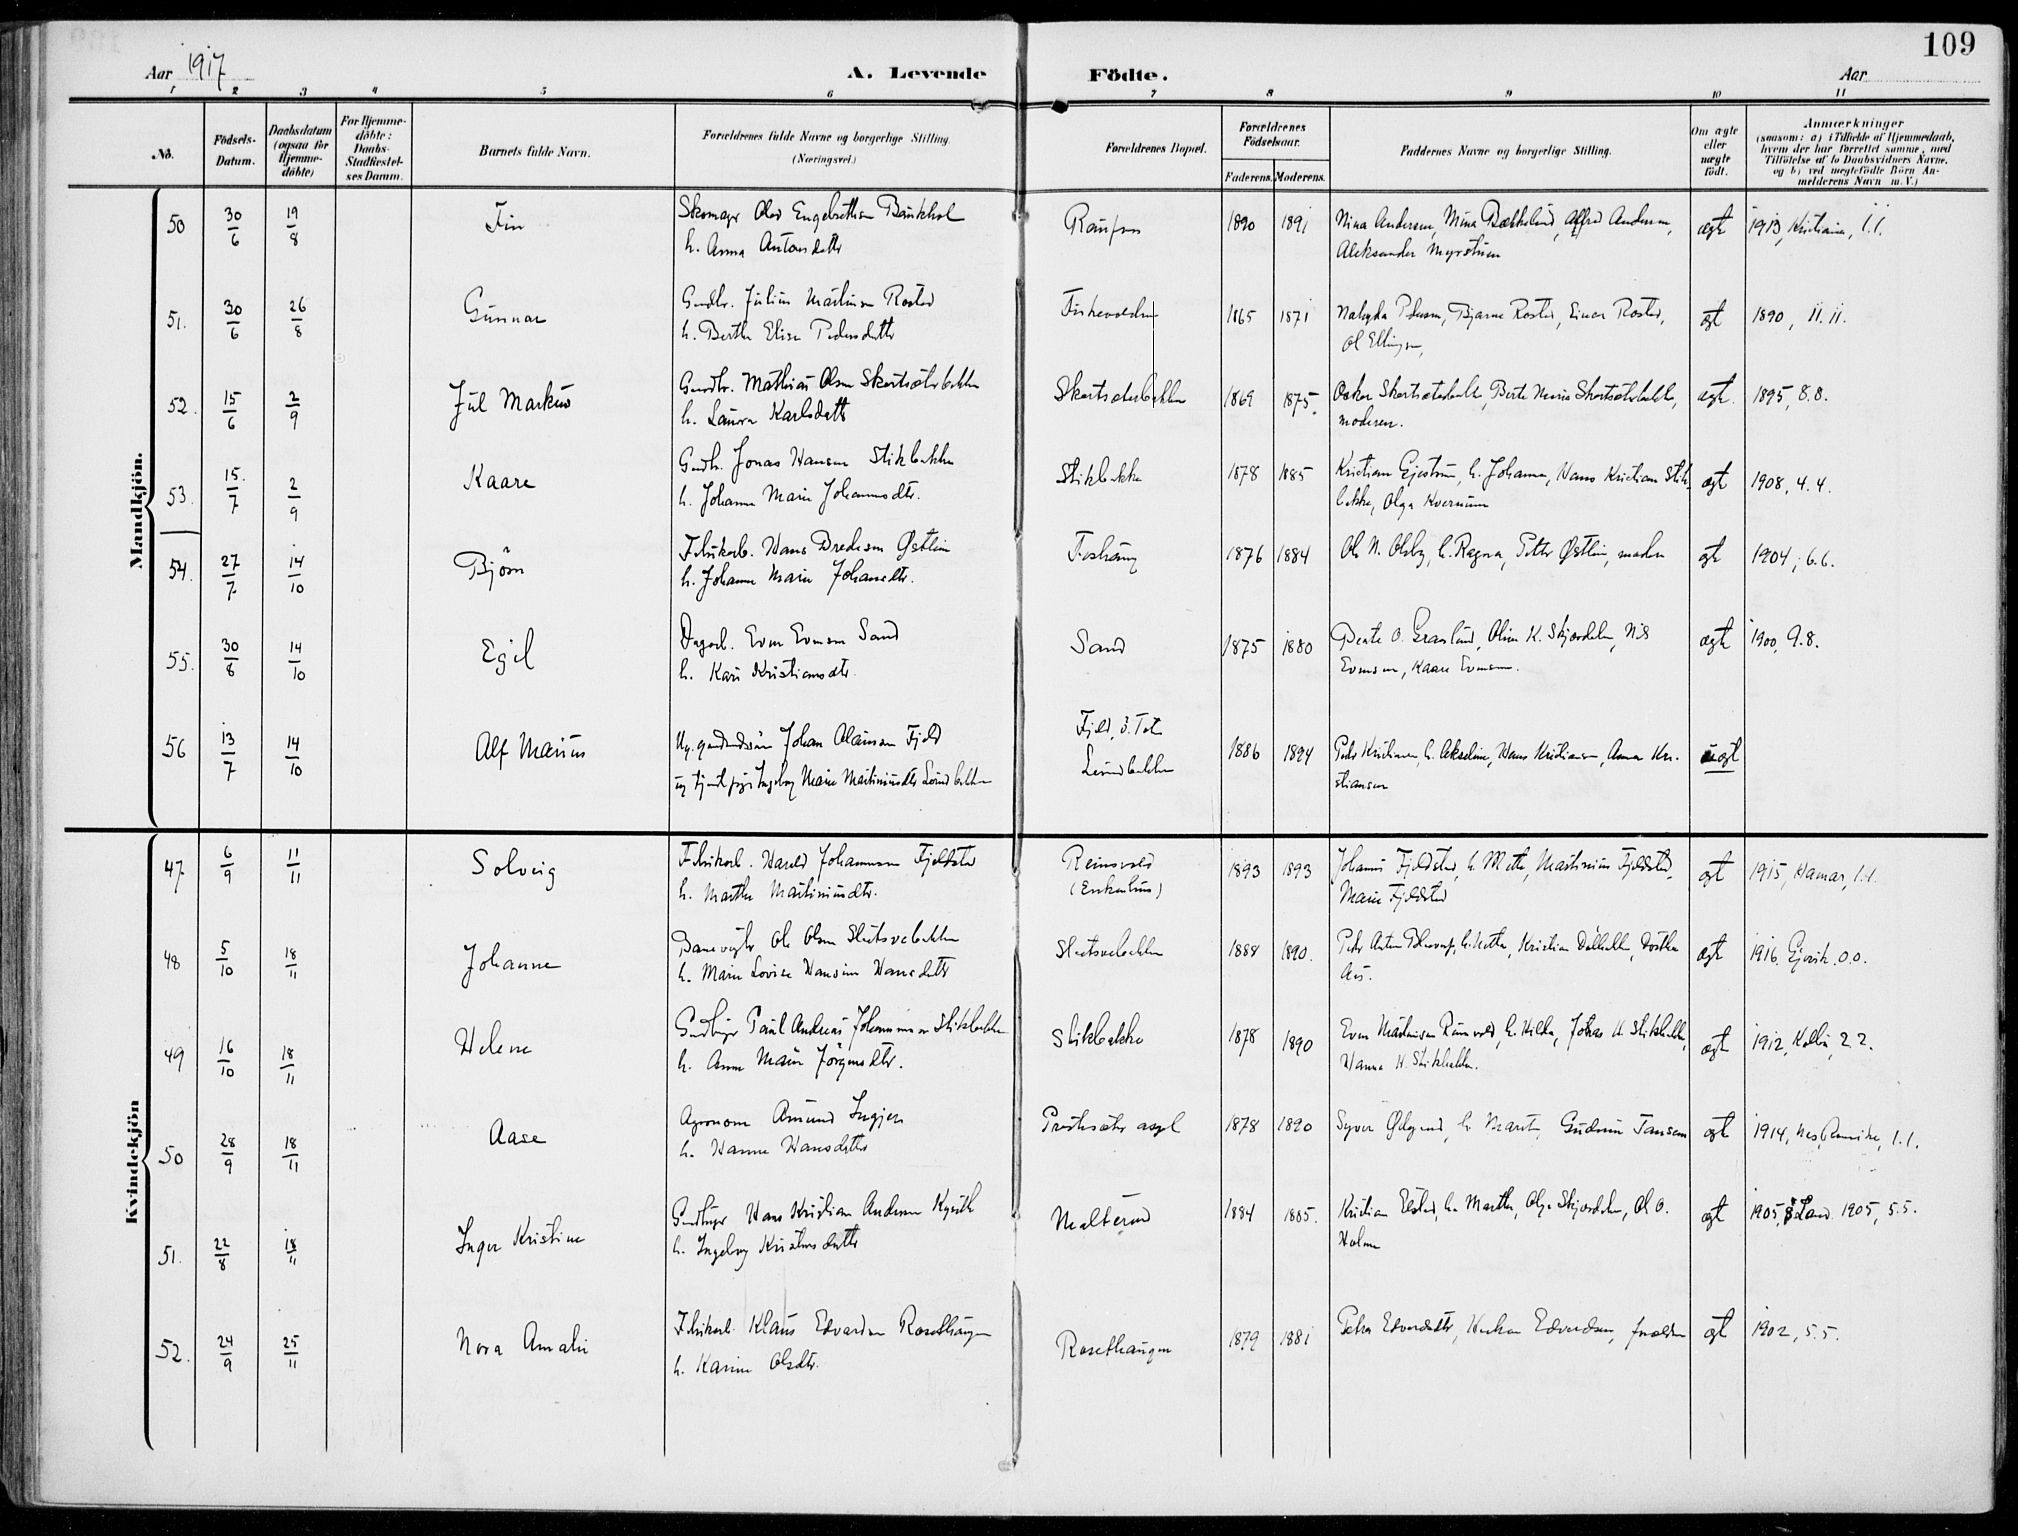 109
Aar 1917
A. Levende Födte.
Aar
1 2 3 4 5 6 7 8 9 10 11
No.
Födsels-Datum.
Daabsdatum (ogsaa for Hjemme-döbte)
For Hjemme-döbte: Daabs-Stadfæstel-ses Datum.
Barnets fulde Navn.
Forældrenes fulde Navne og borgerlige Stilling.
(Næringsvei.)
Forældrenes Bopæl.
Forældrenes Födselsaar.
Faderens. Moderens.
Faddernes Navne og borgerlige Stilling.
Om ægte eller uægte födt.
Anmærkninger
(saasom: a) i Tilfælde af Hjemmedaab, hvem der har forrettet samme, med Tilföielse af to Daabsvidners Navne, og b) ved uægtefödte Börn An-melderens Navn m. V.)
Mandkjön.
50 30/6 19/8 Fin Skomager Olav Engebrethsen
h. Anna Antonsdatter
Raufoss 1890 1891 Nina Andersen, Mina Bækkelund, Alfred Andersen,
Aleksander Myrstuen
ægte 1913, Kristiania, 1.1.
51. 30/6 26/8 Gunnar Gaardbr. Julius Martinsen Rosted
h. Berthe Elise Pedersdatter
1865 1871 Bjarne Rosted, Einar Rosted,
Ol Ellingsen,
ægt 1890, 11.11.
52. 15/6 2/9 Jul Markus Gaardbr. Mathias Olsen Skartsæterbakken
h. Laura Karlsdatter
Skartsæterbakken 1869 1875. Oskar Skartsæterbakke, Berte Marie Skartsæterbakke,
moderen.
ægt. 1895, 8.8.
53. 15/7 2/9 Kaare Gaardb. Jonas Hansen Stikbakke
h. Johanne Marie Johannesdtr.
Stikbakke 1878 1885 Kristian Gjestrum, h. Johanne, Hans Kristian Stik-
bakke, Olga Kvernum
ægt 1908, 4.4.
54. 27/7 14/10 Björn Fabrikarb. Hans Bredesen Østlien
h. Johanne Marie Johansdtr.
1876 1884 Ole N. Olsby, h. Ragna, Petter Østlien, moder
ægt 1904, 6.6.
55. 30/8 14/10 Egil Dagarb. Even Evensen Sand
h. Kari Kristiansdtr.
Sand 1875 1880 Beate O. Græslund, Oline K. Skjærdalen, Nils
Evensen, Kaare Evensen.
ægt 1900, 9.8.
56 13/7 14/10 Alf Marius Johan Olausen Fjeld
Ingeborg Marie Martiniusdtr Lundbakken
Fjeld, Ö. Toten
Lundbakken
1886 1894 Peder Kristiansen h. Akseline, Hans Kristiansen, Anna Kri-
stiansen
uægt
Kvindekjön
47 6/9 11/11 Solveig Fabrikarb. Harald Johannesen Fjeldsted
h. Marthe Martiniusdtr.
Reinsvold
1893 1893 Johannes Fjeldsted, h. Mette, Martinius Fjeldsted,
Marie Fjeldsted
ægt 1915, Hamar, 1.1.
48 5/10 18/11 Johanne Banevogter Ole Olsen Sletsvebakken
h. Marie Lovise Hansine Hansdatter
Sletsvebakken 1888 1890. Kristian Dalbakke, Dorthea
Aas.
ægt 1916. Gjøvik. 0.0.
49 16/10 18/11 Helene Gaardbruger Paul Andreas Johannesen Stikbakke
h. Anne Marie Jörgensdtr.
Stikbakke 1878 1890 Even Martinsen Reinsvold, h. Hilda, Johan H. Stikbakke,
Hanna H. Stikbakke.
ægt 1912, Kolbu, 2.2.
50 28/9 18/11 Aase Agronom Amund Ingjer
h. Hanne Hansdatter
Prestesæter asyl 1878 1890 Syver Ødegaard, h. Marit, Gudrun Jansen
ægt 1914, Nes, Romerike, 1.1.
51. 22/8 18/11 Inger Kristine Gaardbruger Hans Kristian Andersen
h. Ingeborg Kristensdatter
Malterud 1884 1885. Kristian Elstad, h. Marthe, Olga Skjærdalen, Ol O.
Holm
ægt 1905, S. Land. 1905, 5.5.
52. 24/9 25/11 Nora Amalie Fabrikarb. Klaus Edvardsen Rosethaugen
h. Karine Olsdtr.
Rosethaugen 1879 1881 Petra Edvardsdtr, Haakon Edvardsen, forældre
ægt 1902, 5.5.